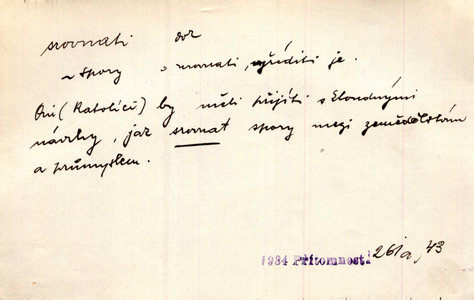 srovnati dok
~ spory = srovnati, vyříditi je.
Oni (katolíci) by měli přijíti s kloudnými
návrhy, jak srovnat spory mezi zemědělstvím
a průmyslem.
1934 Přítomnost 261a, 43